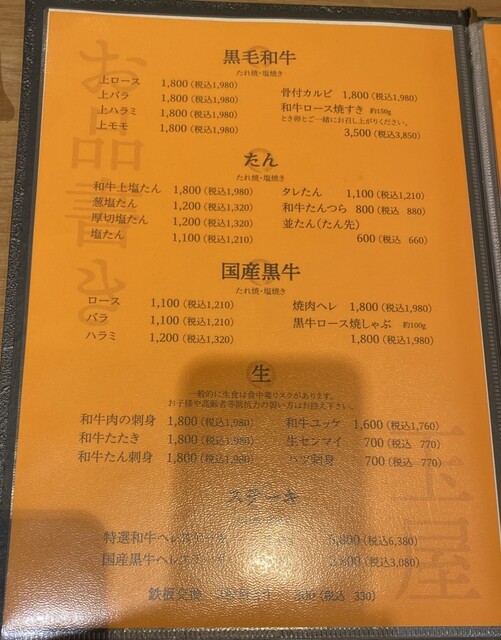 お品書き
黒毛和牛
たれ焼・塩焼き
上ロース 1,800(税込1,980)
上バラ 1,800(税込1,980)
上ハラミ 1,800(税込1,980)
上モモ 1,800(税込1,980)
骨付カルビ 1,800(税込1,980)
和牛ロース焼すき 約150g
とき卵とご一緒にお召し上がりください。
3,500(税込3,850)
たん
たれ焼・塩焼き
和牛上塩たん 1,800(税込1,980)
葱塩たん 1,200(税込1,320)
厚切塩たん 1,200(税込1,320)
塩たん 1,100(税込1,210)
タレたん 1,100(税込1,210)
和牛たんつら 800(税込 880)
並たん(たん先)
600(税込 660)
国産黒牛
たれ焼・塩焼き
ロース 1,100(税込1,210)
バラ 1,100(税込1,210)
ハラミ 1,200(税込1,320)
焼肉ヘレ 1,800(税込1,980)
黒牛ロース焼しゃぶ 約100g
1,800(税込1,980)
生
一般的に生食は食中毒リスクがあります。
お子様や高齢者等抵抗力の弱い方はお控え下さい。
和牛肉の刺身 1,800(税込1,980)
和牛たたき 1,800(税込1,980)
和牛たん刺身 1,800(税込1,980)
和牛ユッケ 1,600(税込1,760)
生センマイ 700(税込 770)
ハツ刺身 700(税込 770)
ステーキ
特選和牛ヘレステーキ 5,800(税込6,380)
国産黒牛ヘレステーキ 2,800(税込3,080)
鉄板交換 300(税込 330)
玉屋